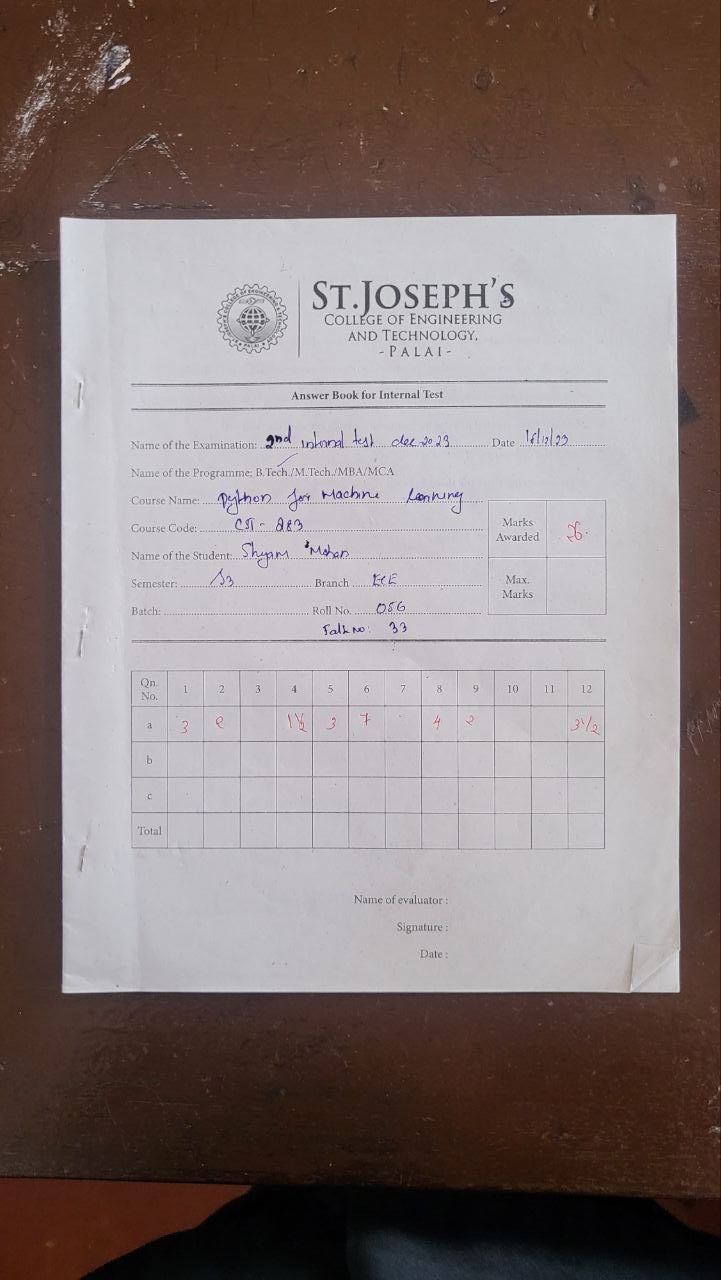 ST.JOSEPH'S
COLLEGE OF ENGINEERING
AND TECHNOLOGY,
- PALAI -
Answer Book for Internal Test
Name of the Examination: 2nd internal test dec 2023 Date
Name of the Programme: B.Tech./M.Tech./MBA/MCA
Course Name: Python for Machine
Course Code: CST - 283
Marks Awarded 26
Name of the Student: Shyam Mohan
Semester: S3 Branch
Max. Marks
Batch: Roll No. 056
No: 33
Qn. No. 1 2 3 4 5 6 7 8 9 10 11 12
a 3 2 1½ 3 7 4 2 3½
b
c
Total
Name of evaluator :
Signature :
Date :